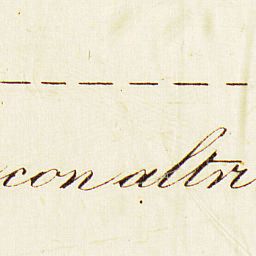 con altri